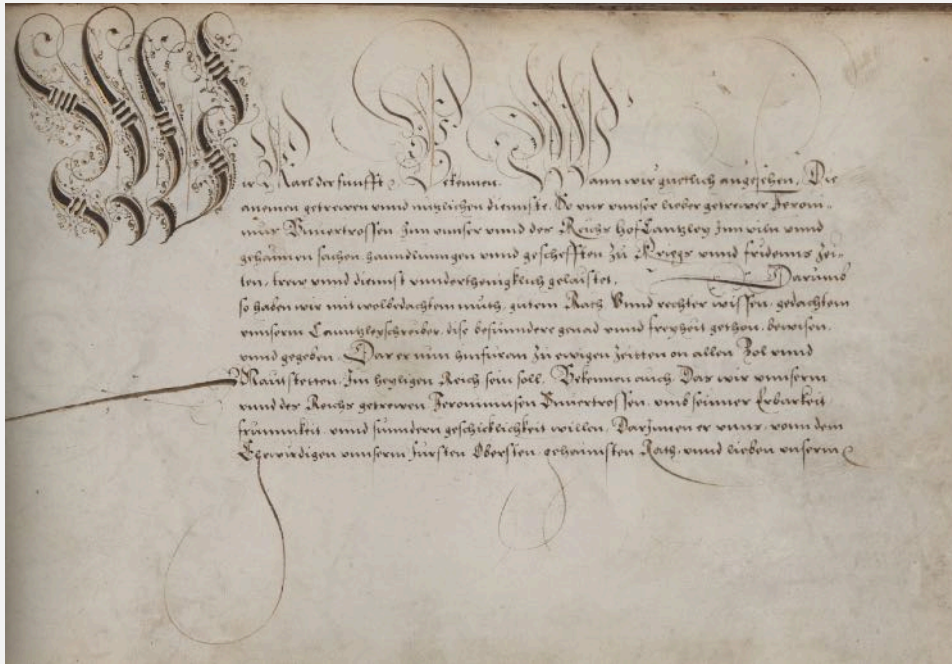 Wir Karl der funfft Bekennen. Wann wir guetlich angesehen, Die
anemen getrewen vnnd nutzlichen diennste. So vnns vnnser lieber getrewer Jeroni-
mus Vnuertrossen Jnn vnnser vnnd des Reichs hof Cantzley Jnn viln vnnd
gehaimen sachen, hanndlungen vnnd geschefften zu Kriegs vnnd fridenns zei-
ten, trew vnnd diennst vnnderthenigklich gelaistet. Darumb
so haben wir mit wolbedachtem muth, gutem Rath Vnnd rechter wissen, gedachtem
vnnserm Canntzleyschreiber, dise besunndere gnad vnnd freyheit gethon, bewisen,
vnnd gegeben. Das er nun hinfuran zu ewigen zeitten on allen Zol vnnd
Mautstetten, Jm heyligen Reich sein soll. Bekennen auch Das wir vnnserm
vnnd des Reichs getrewen Jeronimusen Vnuertrossen, vmb seinner Erbarkeit
frumnkeit, vnnd sunndern geschicklichkeit willen. Darjnnen er vnns, vonn dem
Ehrwirdigen vnnserm fursten Obersten, gehaimsten Rath, vnnd lieben vnserm